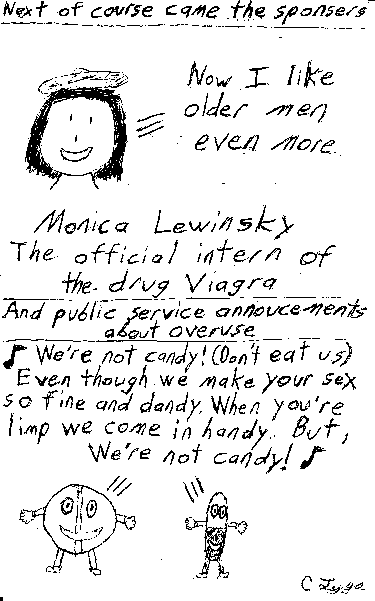 Next of course came the sponsers
Now I like
older men
even more
Monica Lewinsky
The official intern of
the drug Viagra
And public service annoucements
about overuse
♪ We're not candy! (Don't eat us)
Even though we make your sex
so fine and dandy. When you're
limp we come in handy. But,
We're not candy! ♪
C